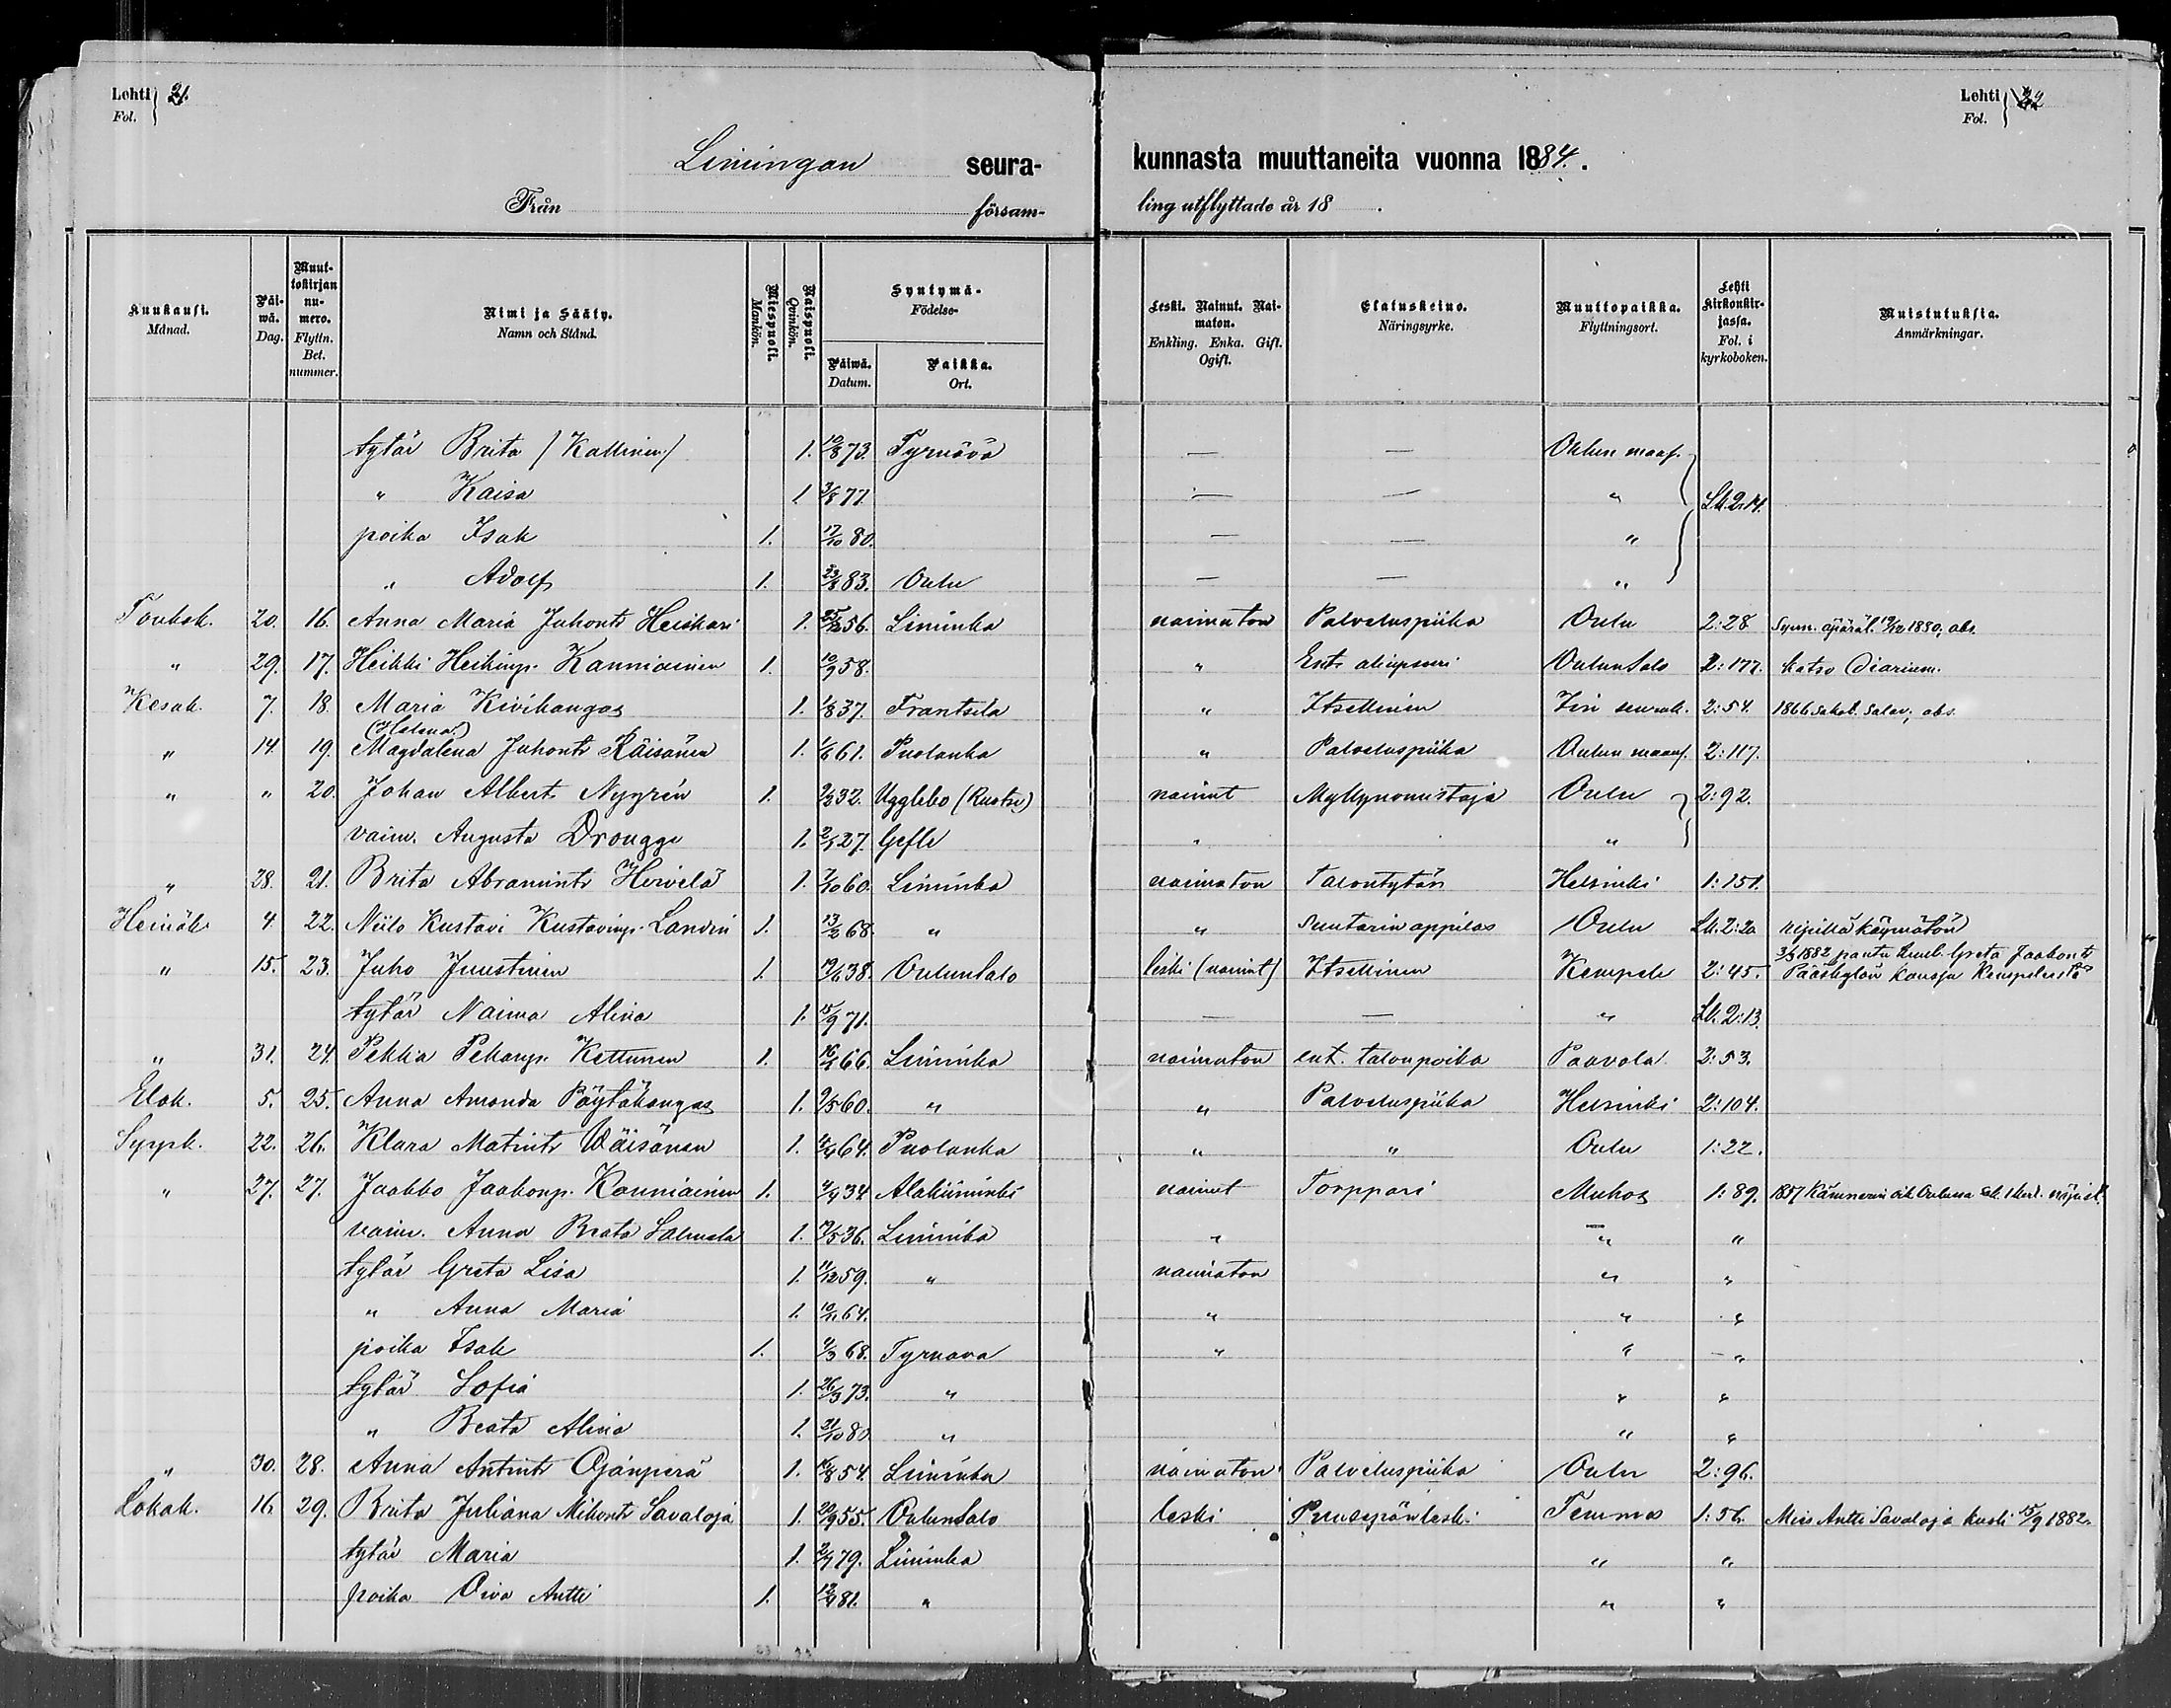 Lehti 21.
Fol.
Lehti 22
Fol.
Limingan seurakunnasta muuttaneita vuonna 1884.
Från församling utflyttade år 18 .
Kuukausi. Månad.
Päiwä. Dag.
Muuttokirjan numero. Flyttn. Bet. nummer.
Nimi ja Sääty. Namn och Stånd.
Miespuoli. Mankön.
Naispuoli. Qvinkön.
Syntymä- Födelse-
Päiwä. Datum.
Paikka. Ort.
Leski. Nainut. Naimaton. Enkling. Enka. Gift. Ogift.
Elatuskeino. Näringsyrke.
Muuttopaikka. Flyttningsort.
Lehti kirkonkirjassa. Fol. i kyrkoboken.
Muistutuksia. Anmärkningar.
tytär Brita (Kallinen) 1. 10/8 73. Tyrnävä — — Oulun maas.
" Kaisa 1 3/8 77. — — " Lk. 2:14.
poika Isak 1. 17/10 80. — — "
" Adolf 1. 83. Oulu — — "
Toukok. 20. 16. Anna Maria Juhont. Heiskari 1. 56. Liminka naimaton Palveluspiika Oulu 2:28 Synn. äpäräl. 1880, abs.
" 29. 17. Heikki Heikinp. Kanniainen 1. 10/9 58. " Ent. Oulunsalo 2:177. katso Diarium.
Kesäk. 7. 18. Maria Kivikangas 1. 1/8 37. Frantsila " Itsellinen Iin seurak. 2:54. 1866 salav., abs.
(Helena)
" 14. 19. Magdalena Juhont. Räisänen 1. 1/6 61. Puolanka " Palveluspiika Oulun maas. 2:117.
" " 20. Johan Albert Nygrén 1. 32. Ugglebo (Ruotsi) nainut Myllynomistaja Oulu 2:92.
vaim. Augusta Drougge 1. 27. Gefle " "
" 28. 21. Brita Abramint. Hirvelä 1. 7/10 60. Liminka naimaton Talontytär Helsinki 1:151.
Heinäk. 4. 22. Niilo Kustavi Kustavinp. Landin 1. 13/2 68. " " Suutarin oppilas Oulu Lk. 2:20 ripillä käymätön
" 15. 23. Juho Juustinen 1. 38. Oulunsalo leski (nainut) Itsellinen Kempele 2:45. 1882 pantu kuul. Greta Jaakont. Pääskylän kanssa Kempeleestä
tytär Naima Alina 1. 15/9 71. — — " Lk. 2:13.
" 31. 24. Pekka Pekanp. Kettunen 1. 66. Liminka naimaton ent. talonpoika Paavola 2:53.
Elok. 5. 25. Anna Amanda Pöytäkangas 1. 9/5 60. " " Palveluspiika Helsinki 2:104.
Syysk. 22. 26. Klara Matint. Väisänen 1. 64. Puolanka " " Oulu 1:22.
" 27. 27. Jaakko Jaakonp. Kanniainen 1. 34 Alakiiminki nainut Torppari Muhos 1:89. 1857 Kämnerin oik. Oulussa
vaim. Anna Beata 1. 36. Liminka " " "
tytär Greta Lisa 1. 11/12 59. " naimaton " "
" Anna Maria 1. 64. " " "
poika Isak 1. 68. Tyrnävä " " "
tytär Sofia 1. 26/3 73. " " "
" Beata Alina 1. 21/10 80 " " "
" 30. 28. Anna Antint. Ojanperä 1. 54. Liminka naimaton Palveluspiika Oulu 2:96.
Lokak. 16. 29. Brita Juliana Mikont. Savaloja 1. 20/9 55. Oulunsalo leski Temmes 1:56. Mies Antti Savaloja kuoli 15/9 1882.
tytär Maria 1. 79. Liminka " "
poika Oiva Antti 1. 81. " " "